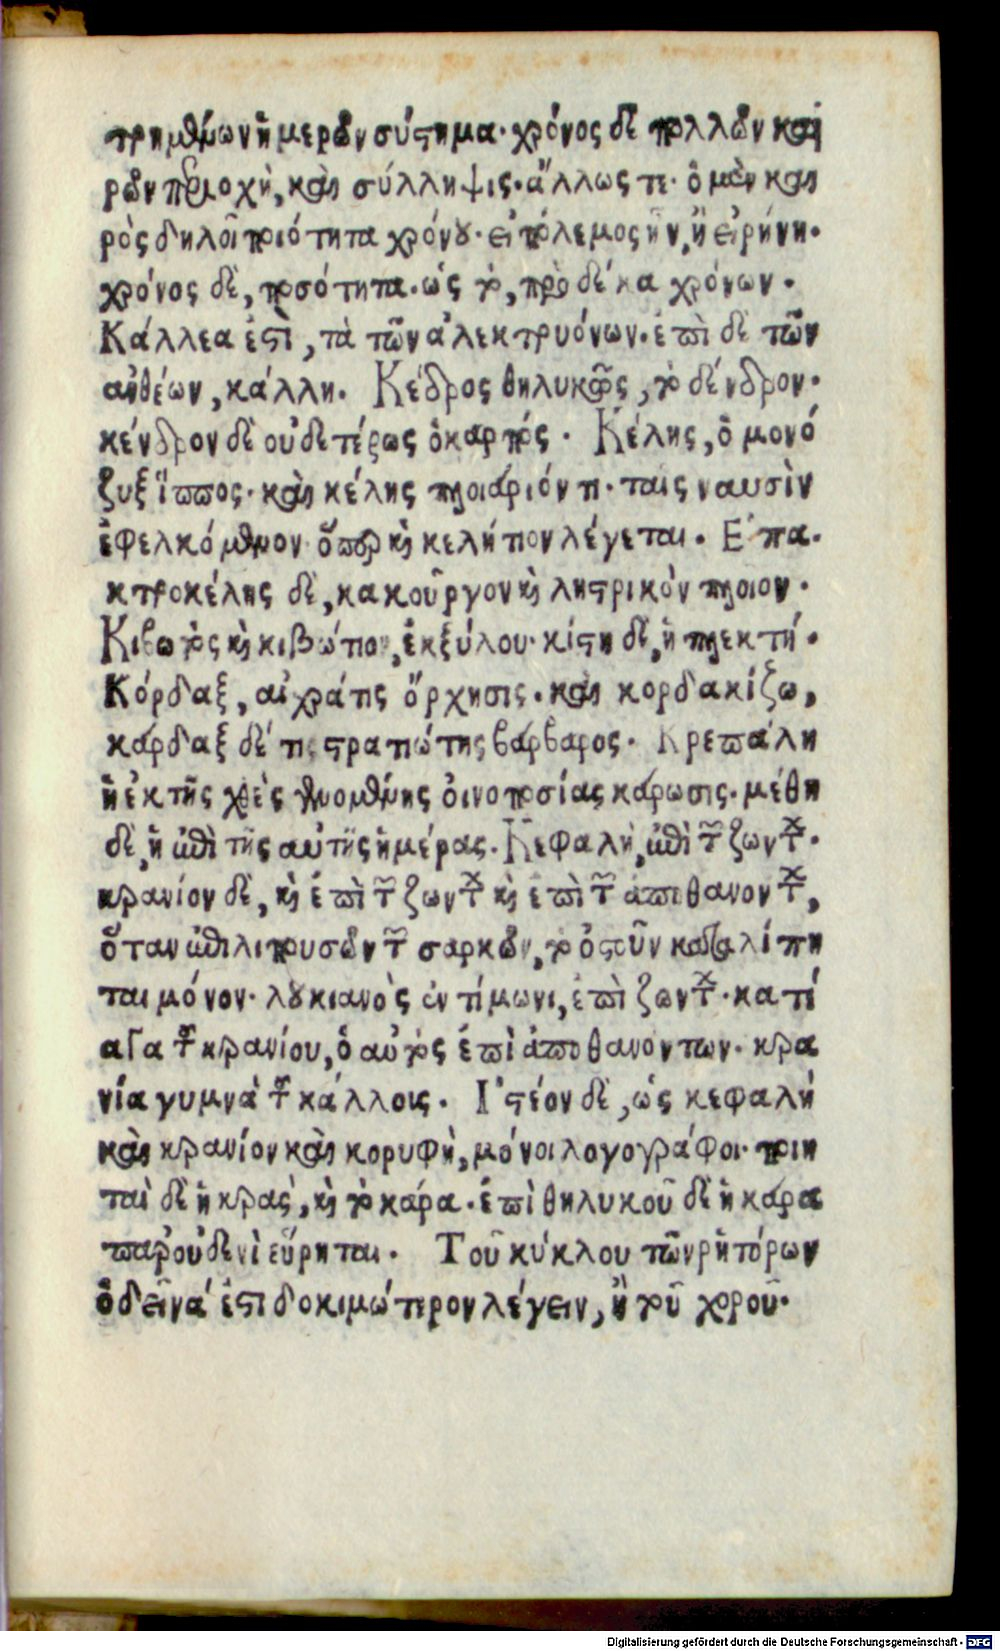 τρημένων ἡμερῶν σύστημα· χρόνος δὲ πολλῶν και
ρῶν περιοχὴ, καὶ σύλληψις. ἄλλως τε· ὁ μὲν και
ρὸς δηλοῖ ποιότητα χρόνου· εἰ πόλεμος ἦν, ἢ εἰρήνη.
χρόνος δὲ, ποσότητα. ὡς τὸ, πρὸ δέκα χρόνων.
Κάλλεα ἐστὶ, τὰ τῶν ἀλεκτρυόνων. ἐπὶ δὲ τῶν
ἀνθέων, κάλλη. Κέδρος θηλυκῶς, τὸ δένδρον.
κένδρον δὲ οὐδετέρως ὁ καρπός. Κέλης, ὁ μονό
ζυξ ἵππος. καὶ κέλης πλοιάριόν τι. ταῖς ναυσὶν
ἐφελκόμενον ὅπερ καὶ κελήτιον λέγεται. Ἐπα.
κτροκέλης δὲ, κακοῦργον καὶ λῃστρικὸν πλοιον.
Κιβωτὸς καὶ κιβώτιον, ἐκ ξύλου· κίστη δὲ, ἡ πλεκτή.
Κόρδαξ, αἰχρά τις ὄρχησις. καὶ κορδακίζω,
κάρδαξ δέ τις στρατιώτης βάρβαρος. Κρεπάλη
ἡ ἐκ τῆς χθὲς γενομένης οἰνοποσίας κάρωσις. μέθη
δὲ, ἡ ἀπὸ τῆς αὐτῆς ἡμέρας. Κεφαλὴ, ἐπὶ τῶν ζώντων.
κρανίον δὲ, καὶ ἐπὶ τῶν ζώντων καὶ ἐπὶ τῶν ἀποθανόντων,
ὅταν ἐπιλιπουσῶν τῶν σαρκῶν, τὸ ὀστοῦν καταλίπη
ται μόνον. λουκιανὸς ἐν τίμωνι, ἐπὶ ζώντων. κατέ
αγα τοῦ κρανίου, ὁ αὐτὸς ἐπὶ ἀποθανόντων. κρα
νία γυμνὰ τοῦ κάλλους. Ἰστέον δὲ, ὡς κεφαλὴ
καὶ κρανίον καὶ κορυφὴ, μόνοι λογογράφοι. ποιη
ταὶ δὲ ἡ κρας, καὶ τὸ κάρα. ἐπὶ θηλυκοῦ δὲ ἡ κάρα
παρ' οὐδενὶ εὕρηται. Τοῦ κύκλου τῶν ῥητόρων
ὁ δεῖνά ἐστι δοκιμώτερον λέγειν, ἢ τοῦ χοροῦ.
Digitalisierung gefördert durch die Deutsche Forschungsgemeinschaft - DFG